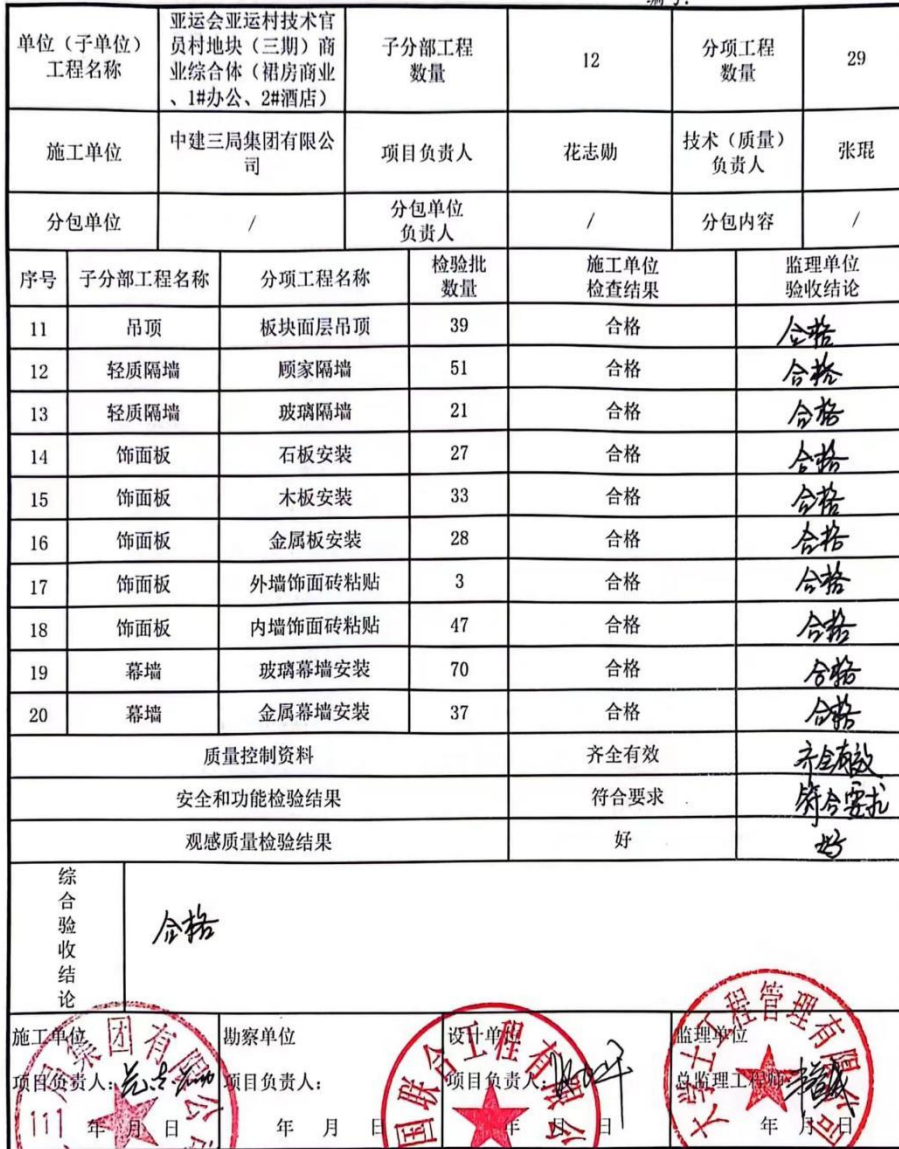 编号:
单位（子单位）
工程名称
亚运会亚运村技术官
员村地块（三期）商
业综合体（裙房商业
、1#办公、2#酒店）
子分部工程
数量
12
分项工程
数量
29
施工单位
中建三局集团有限公
司
项目负责人
花志勋
技术（质量）
负责人
张琨
分包单位
/
分包单位
负责人
/
分包内容
/
序号 子分部工程名称 分项工程名称 检验批数量 施工单位检查结果 监理单位验收结论
11 吊顶 板块面层吊顶 39 合格 合格
12 轻质隔墙 顾家隔墙 51 合格 合格
13 轻质隔墙 玻璃隔墙 21 合格 合格
14 饰面板 石板安装 27 合格 合格
15 饰面板 木板安装 33 合格 合格
16 饰面板 金属板安装 28 合格 合格
17 饰面板 外墙饰面砖粘贴 3 合格 合格
18 饰面板 内墙饰面砖粘贴 47 合格 合格
19 幕墙 玻璃幕墙安装 70 合格 合格
20 幕墙 金属幕墙安装 37 合格 合格
质量控制资料 齐全有效 齐全有效
安全和功能检验结果 符合要求 符合要求
观感质量检验结果 好 好
综合验收结论
合格
施工单位 勘察单位 设计单位 监理单位
项目负责人: 花志勋 项目负责人: 项目负责人: 总监理工程师:
年 月 日 年 月 日 年 月 日 年 月 日
三局集团有限公司
国联合工程有限公
大学士工程管理有限公司